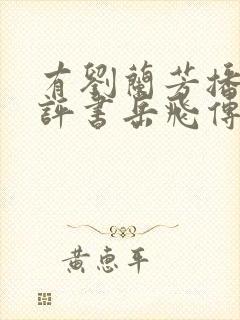 有劉蘭芳播
評書岳飛傳
黄惠平